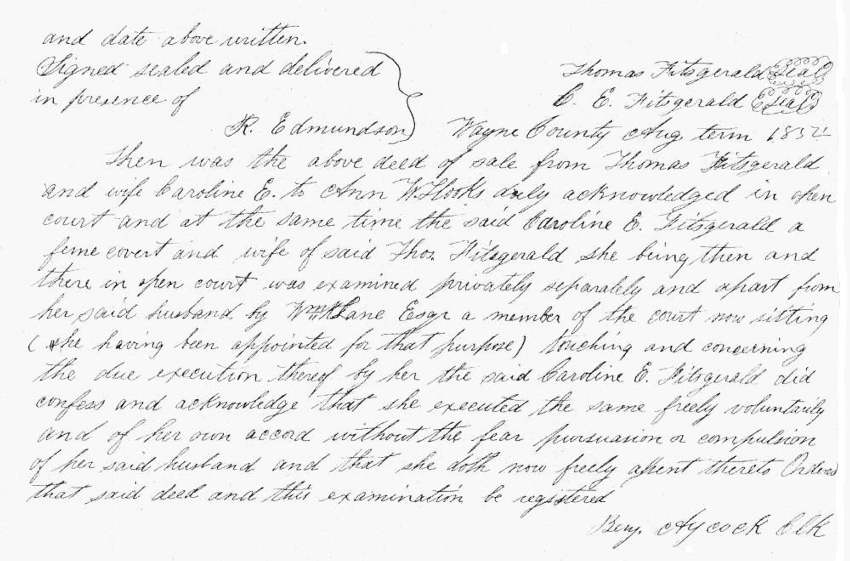 and date above written.
Signed sealed and delivered
in presence of
R. Edmundson
Thomas Fitsgerald Seal
C. E. Fitsgerald Seal
Wayne County Aug term 1834
Then was the above deed of sale from Thomas Fitsgerald
and wife Caroline E. to Ann W. Hooks duly acknowledged in open
court and at the same time the said Caroline E. Fitsgerald a
feme covert and wife of said Thos. Fitsgerald she being then and
there in open court was examined privately separately and apart from
her said husband by Wm K Lane Esqr a member of the court now sitting
(he having been appointed for that purpose) touching and concerning
the due execution thereof by her the said Caroline E. Fitsgerald did
confess and acknowledge that she executed the same freely voluntarily
and of her own accord without the fear pursuasion or compulsion
of her said husband and that she doth now freely assent thereto Ordered
that said deed and this examination be registered
Benj. Aycock Clk